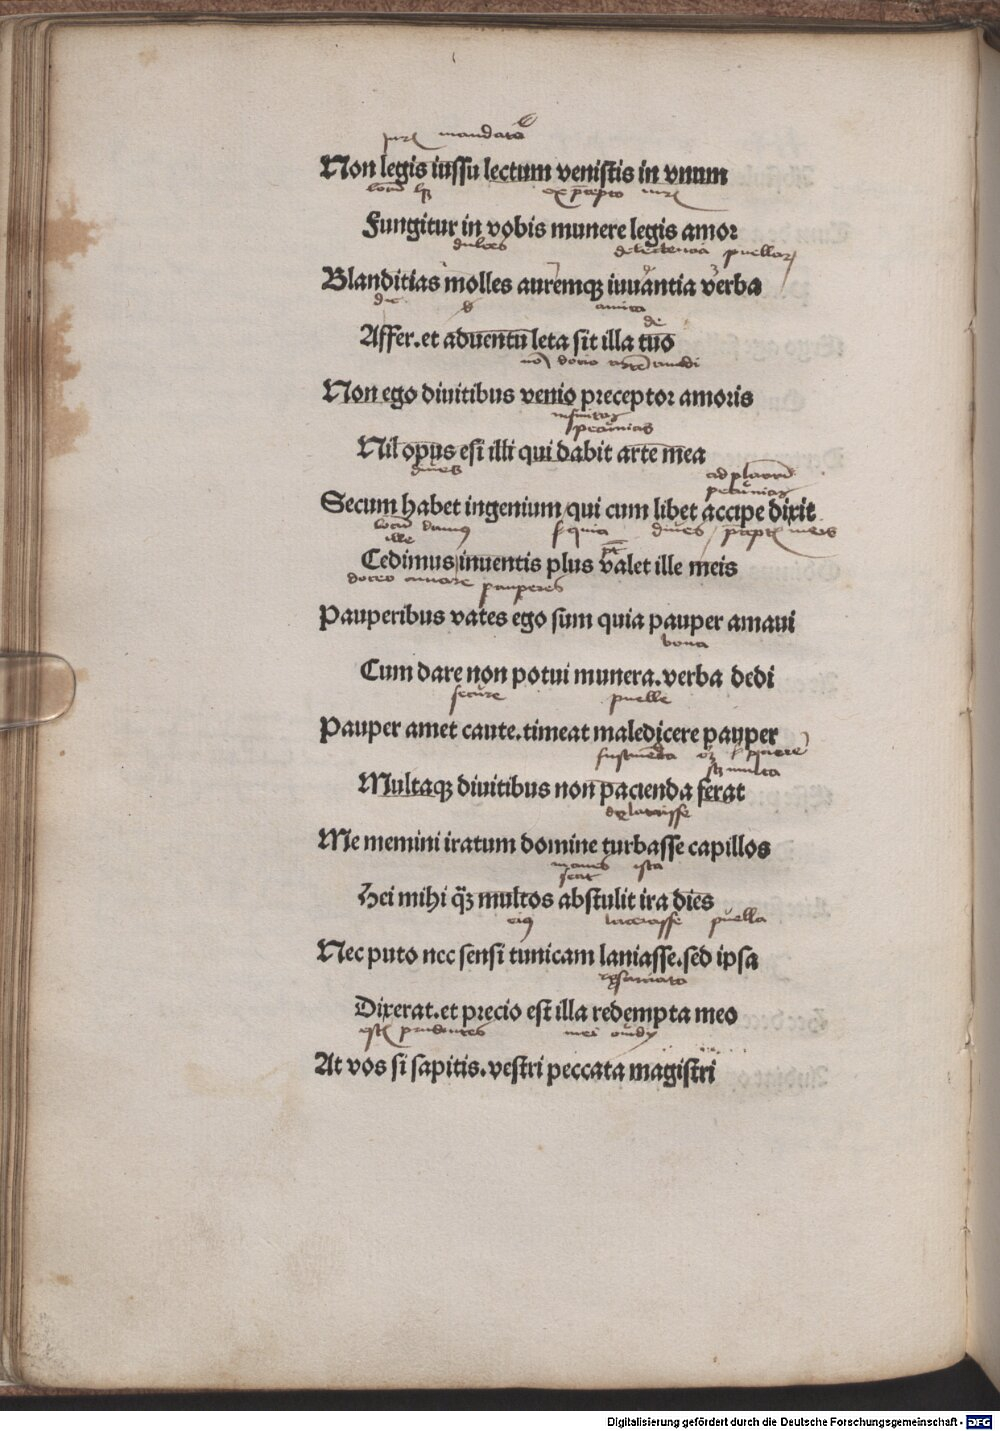 mandato
Non legis iussu lectum venistis in vnum
Fungitur in vobis munere legis amor
dulces delectencia puellarum
Blanditias molles auremqꝫ iuuantia verba
amica
de
Affer.et aduentu leta sit illa tuo
Non ego diuitibus venio preceptor amoris
infinitas
pecunias
Nil opus est illi qui dabit arte mea
diues
Secum habet ingenium qui cum libet accipe dixit
quia diues meis
ille
Cedimus inuentis plus valet ille meis
doceo amare pauperes
Pauperibus vates ego sum quia pauper amaui
bona
Cum dare non potui munera.verba dedi
secure puelle
Pauper amet caute.timeat maledicere pauper
multa
Multaqꝫ diuitibus non pacienda ferat
Me memini iratum domine turbasse capillos
ista
Hei mihi qꝫ multos abstulit ira dies
lacerasse puella
Nec puto nec sensi tunicam laniasse.sed ipsa
Dixerat.et precio est illa redempta meo
prudentes mei
At vos si sapitis.vestri peccata magistri
Digitalisierung gefördert durch die Deutsche Forschungsgemeinschaft - DFG